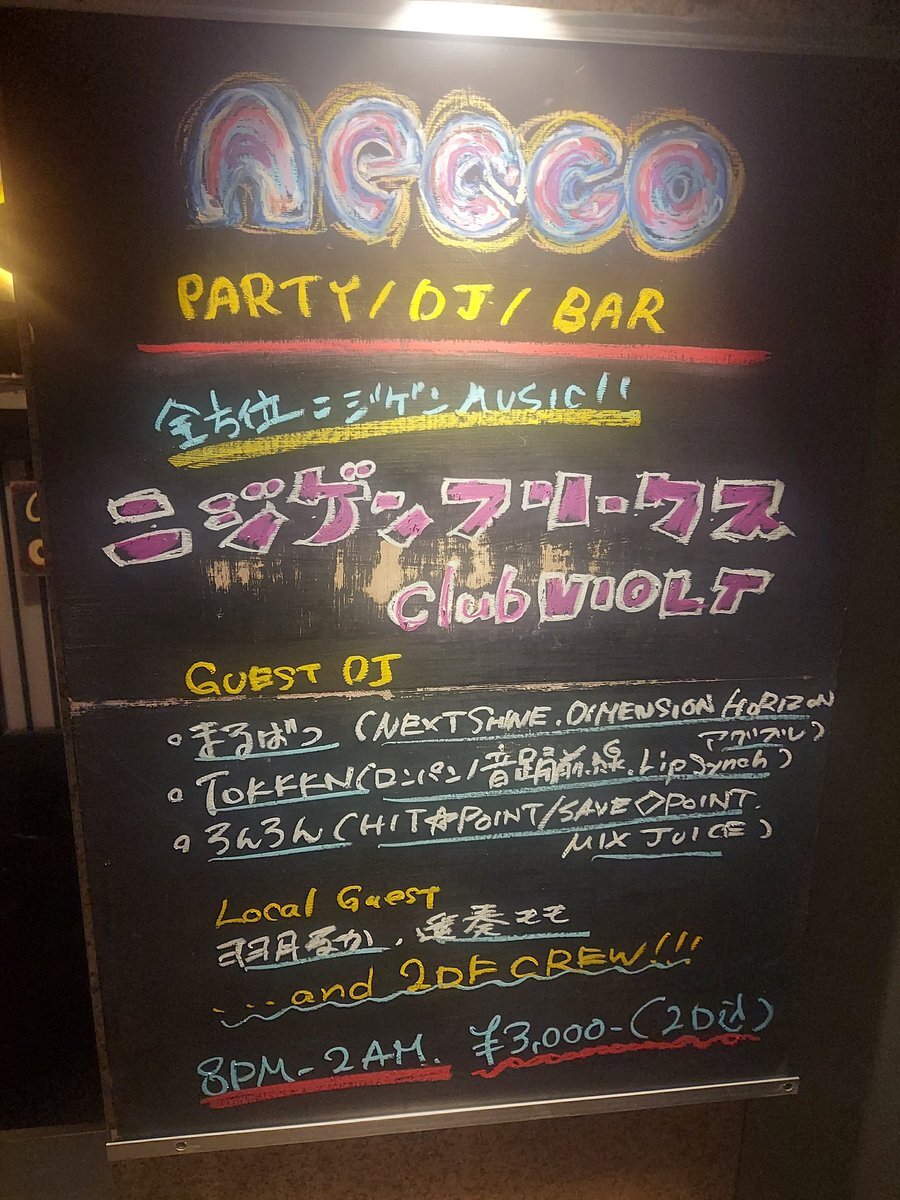 necco
PARTY/DJ/BAR
全方位ニジゲンMUSIC!!
ニジゲンフリークス
club VIOLT
GUEST DJ
・まるばつ (NEXT SHINE.DIMENSION/HORIZON
アゲプレ)
・TOKKKN(ロンパン/音踊前線.Lip Synch)
・ろんろん(HIT☆POINT/SAVE◇POINT.
MIX JUICE)
Local Guest
羽月るか、奏モモ
....and 2DF CREW!!!
8PM-2AM. ¥3,000-(2D込)